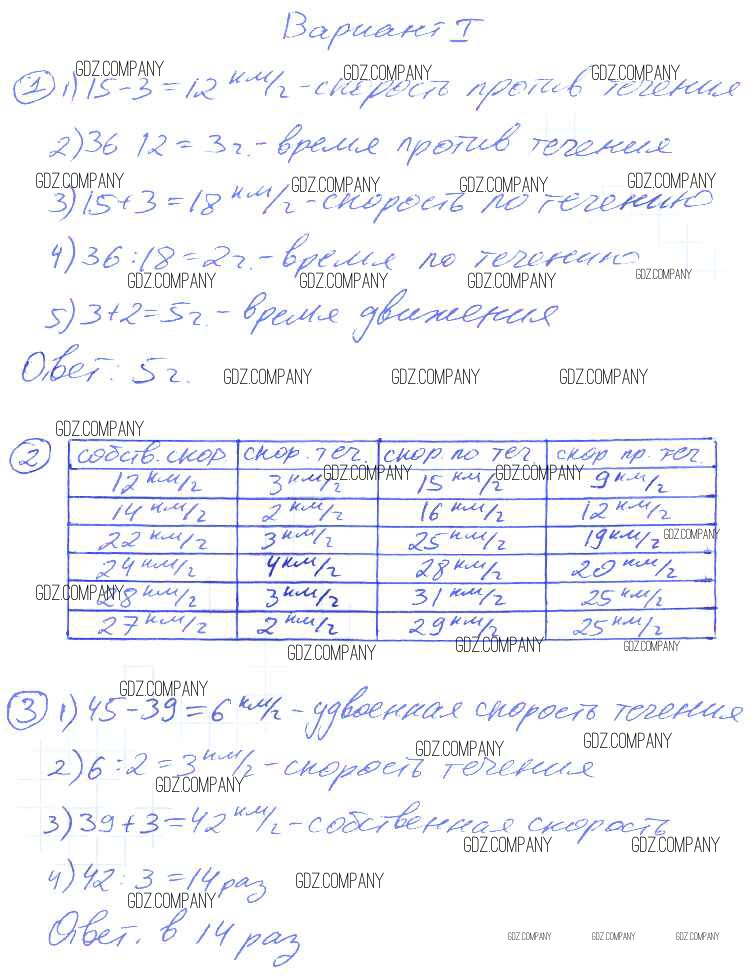 Вариант I
GDZ.COMPANY GDZ.COMPANY GDZ.COMPANY
1 1) 15 - 3 = 12 км/ч - скорость против течения
2) 36 12 = 3 ч. - время против течения
GDZ.COMPANY GDZ.COMPANY GDZ.COMPANY GDZ.COMPANY
3) 15 + 3 = 18 км/ч - скорость по течению
4) 36 : 18 = 2 ч. - время по течению
GDZ.COMPANY GDZ.COMPANY GDZ.COMPANY GDZ.COMPANY
5) 3 + 2 = 5 ч. - время движения
Ответ: 5 ч.
GDZ.COMPANY GDZ.COMPANY GDZ.COMPANY
GDZ.COMPANY
2 собств. скор скор. теч. скор. по теч скор пр. теч.
GDZ.COMPANY GDZ.COMPANY
12 км/ч 3 км/ч 15 км/ч 9 км/ч
14 км/ч 2 км/ч 16 км/ч 12 км/ч
22 км/ч 3 км/ч 25 км/ч 19 км/ч
GDZ.COMPANY
24 км/ч 4 км/ч 28 км/ч 20 км/ч
GDZ.COMPANY
28 км/ч 3 км/ч 31 км/ч 25 км/ч
27 км/ч 2 км/ч 29 км/ч 25 км/ч
GDZ.COMPANY GDZ.COMPANY GDZ.COMPANY
GDZ.COMPANY
3 1) 45 - 39 = 6 км/ч - удвоенная скорость течения
GDZ.COMPANY GDZ.COMPANY
2) 6 : 2 = 3 км/ч - скорость течения
GDZ.COMPANY
3) 39 + 3 = 42 км/ч - собственная скорость
GDZ.COMPANY GDZ.COMPANY
4) 42 : 3 = 14 раз
GDZ.COMPANY
GDZ.COMPANY
Ответ. в 14 раз
GDZ.COMPANY GDZ.COMPANY GDZ.COMPANY